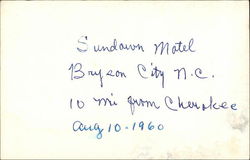 Sundown Motel
Bryson City N.C.
10 mi from Cherokee
Aug 10-1960